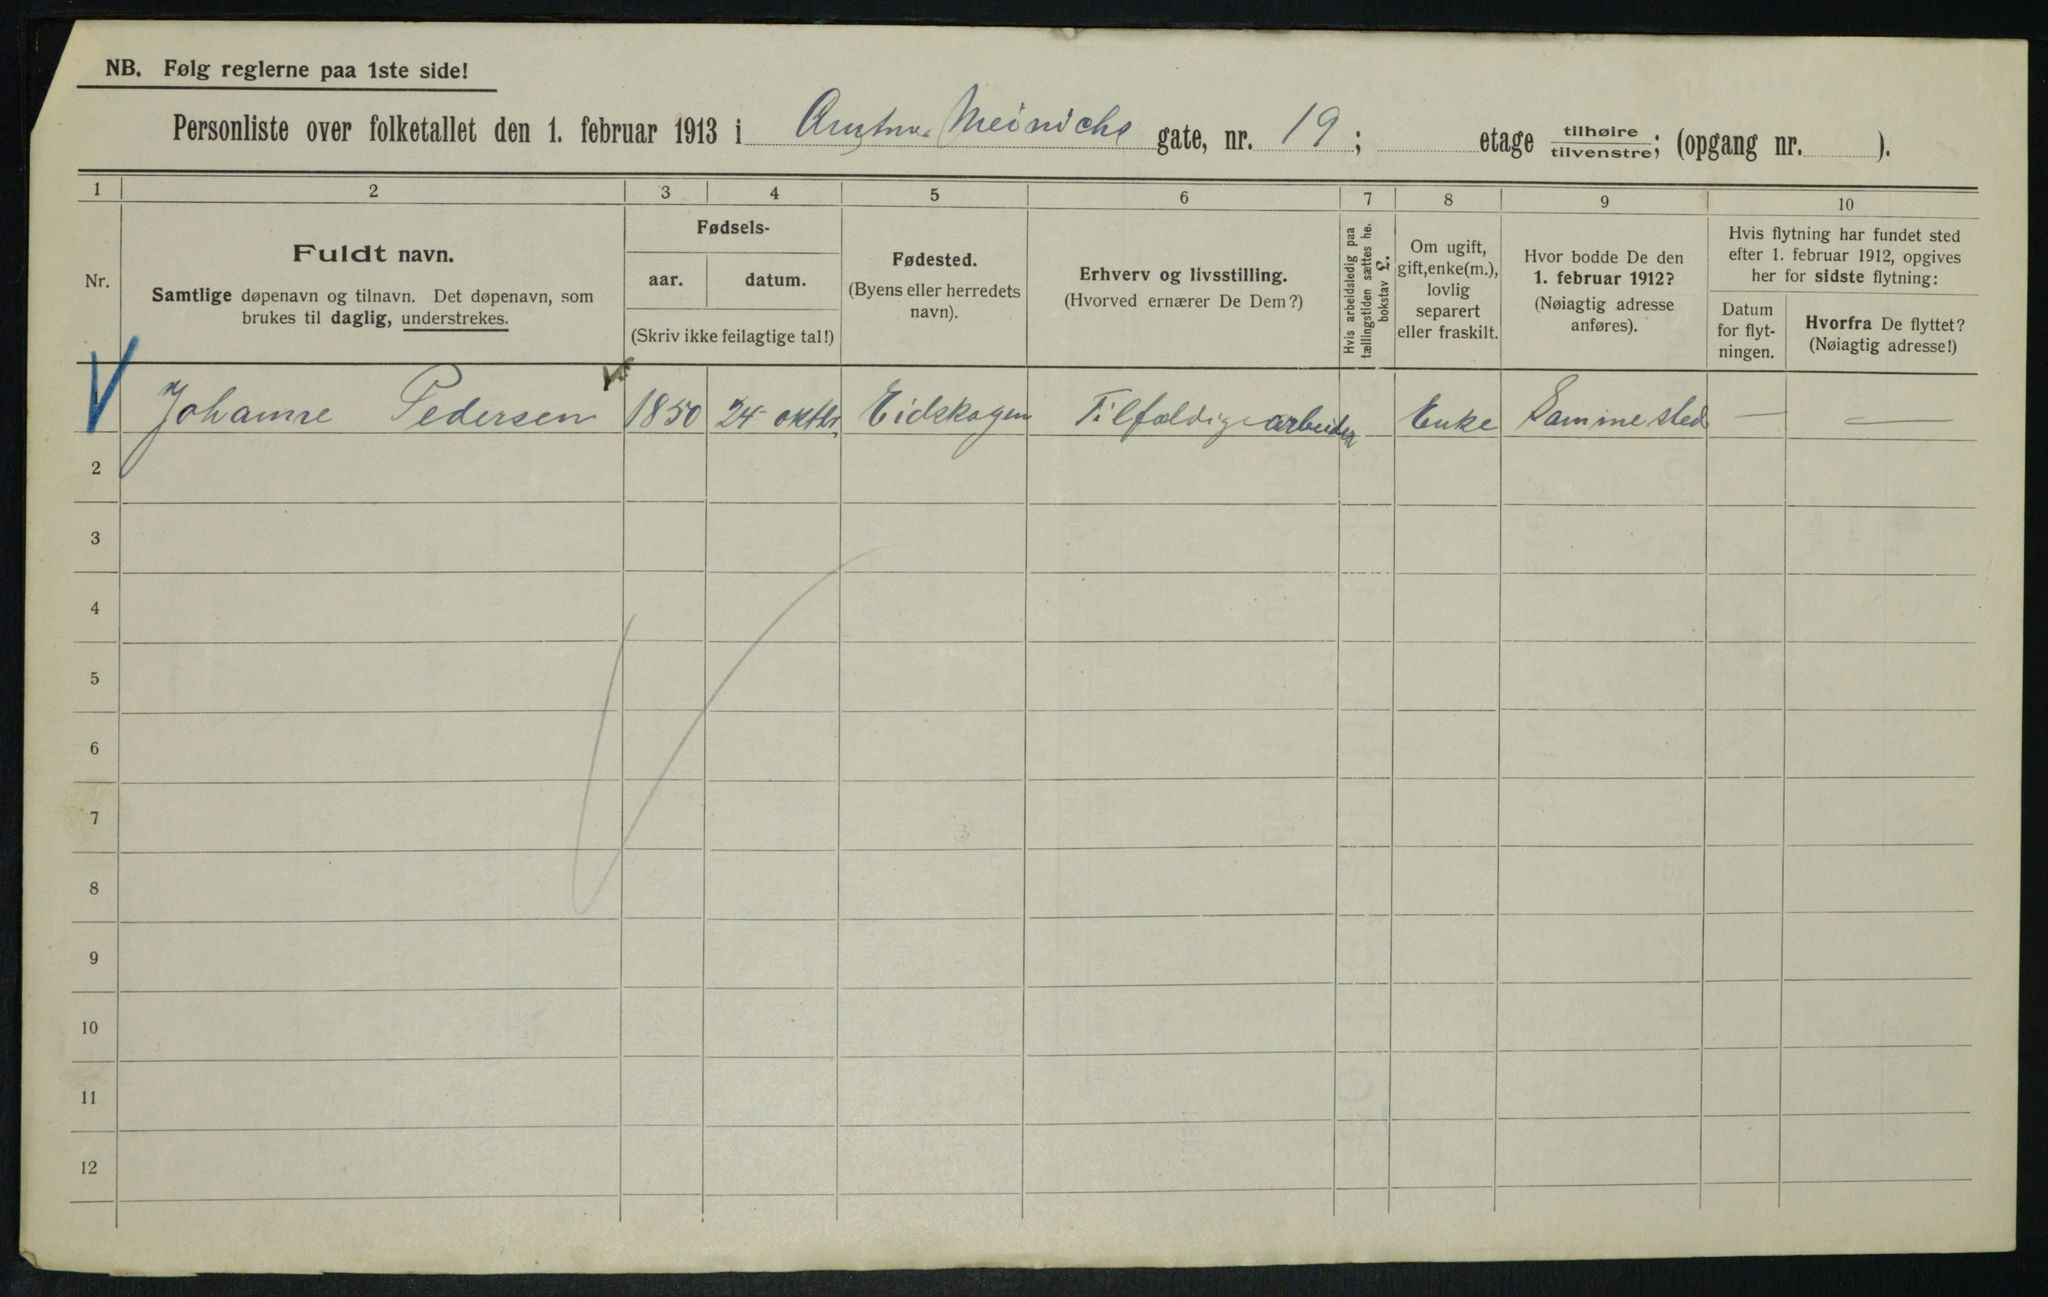 NB. Følg reglerne paa 1ste side!
Personliste over folketallet den 1. februar 1913 i Amtm. Meinichs gate, nr. 19; etage tilhøire / tilvenstre; (opgang nr. ).
1 2 3 4 5 6 7 8 9 10
Nr.
Fuldt navn.
Samtlige døpenavn og tilnavn. Det døpenavn, som
brukes til daglig, understrekes.
Fødsels-
aar. datum.
(Skriv ikke feilagtige tal!)
Fødested.
(Byens eller herredets
navn).
Erhverv og livsstilling.
(Hvorved ernærer De Dem?)
Hvis arbeidsledig paa
tællingstiden sættes he.
bokstav L.
Om ugift,
gift, enke(m.),
lovlig
separert
eller fraskilt.
Hvor bodde De den
1. februar 1912?
(Nøiagtig adresse
anføres).
Hvis flytning har fundet sted
efter 1. februar 1912, opgives
her for sidste flytning:
Datum
for flyt-
ningen.
Hvorfra De flyttet?
(Nøiagtig adresse!)
Johanne Pedersen 1850 24 oktbr. Eidskogen Tilfældig arbeider Enke Samme sted — —
2
3
4
5
6
7
8
9
10
11
12